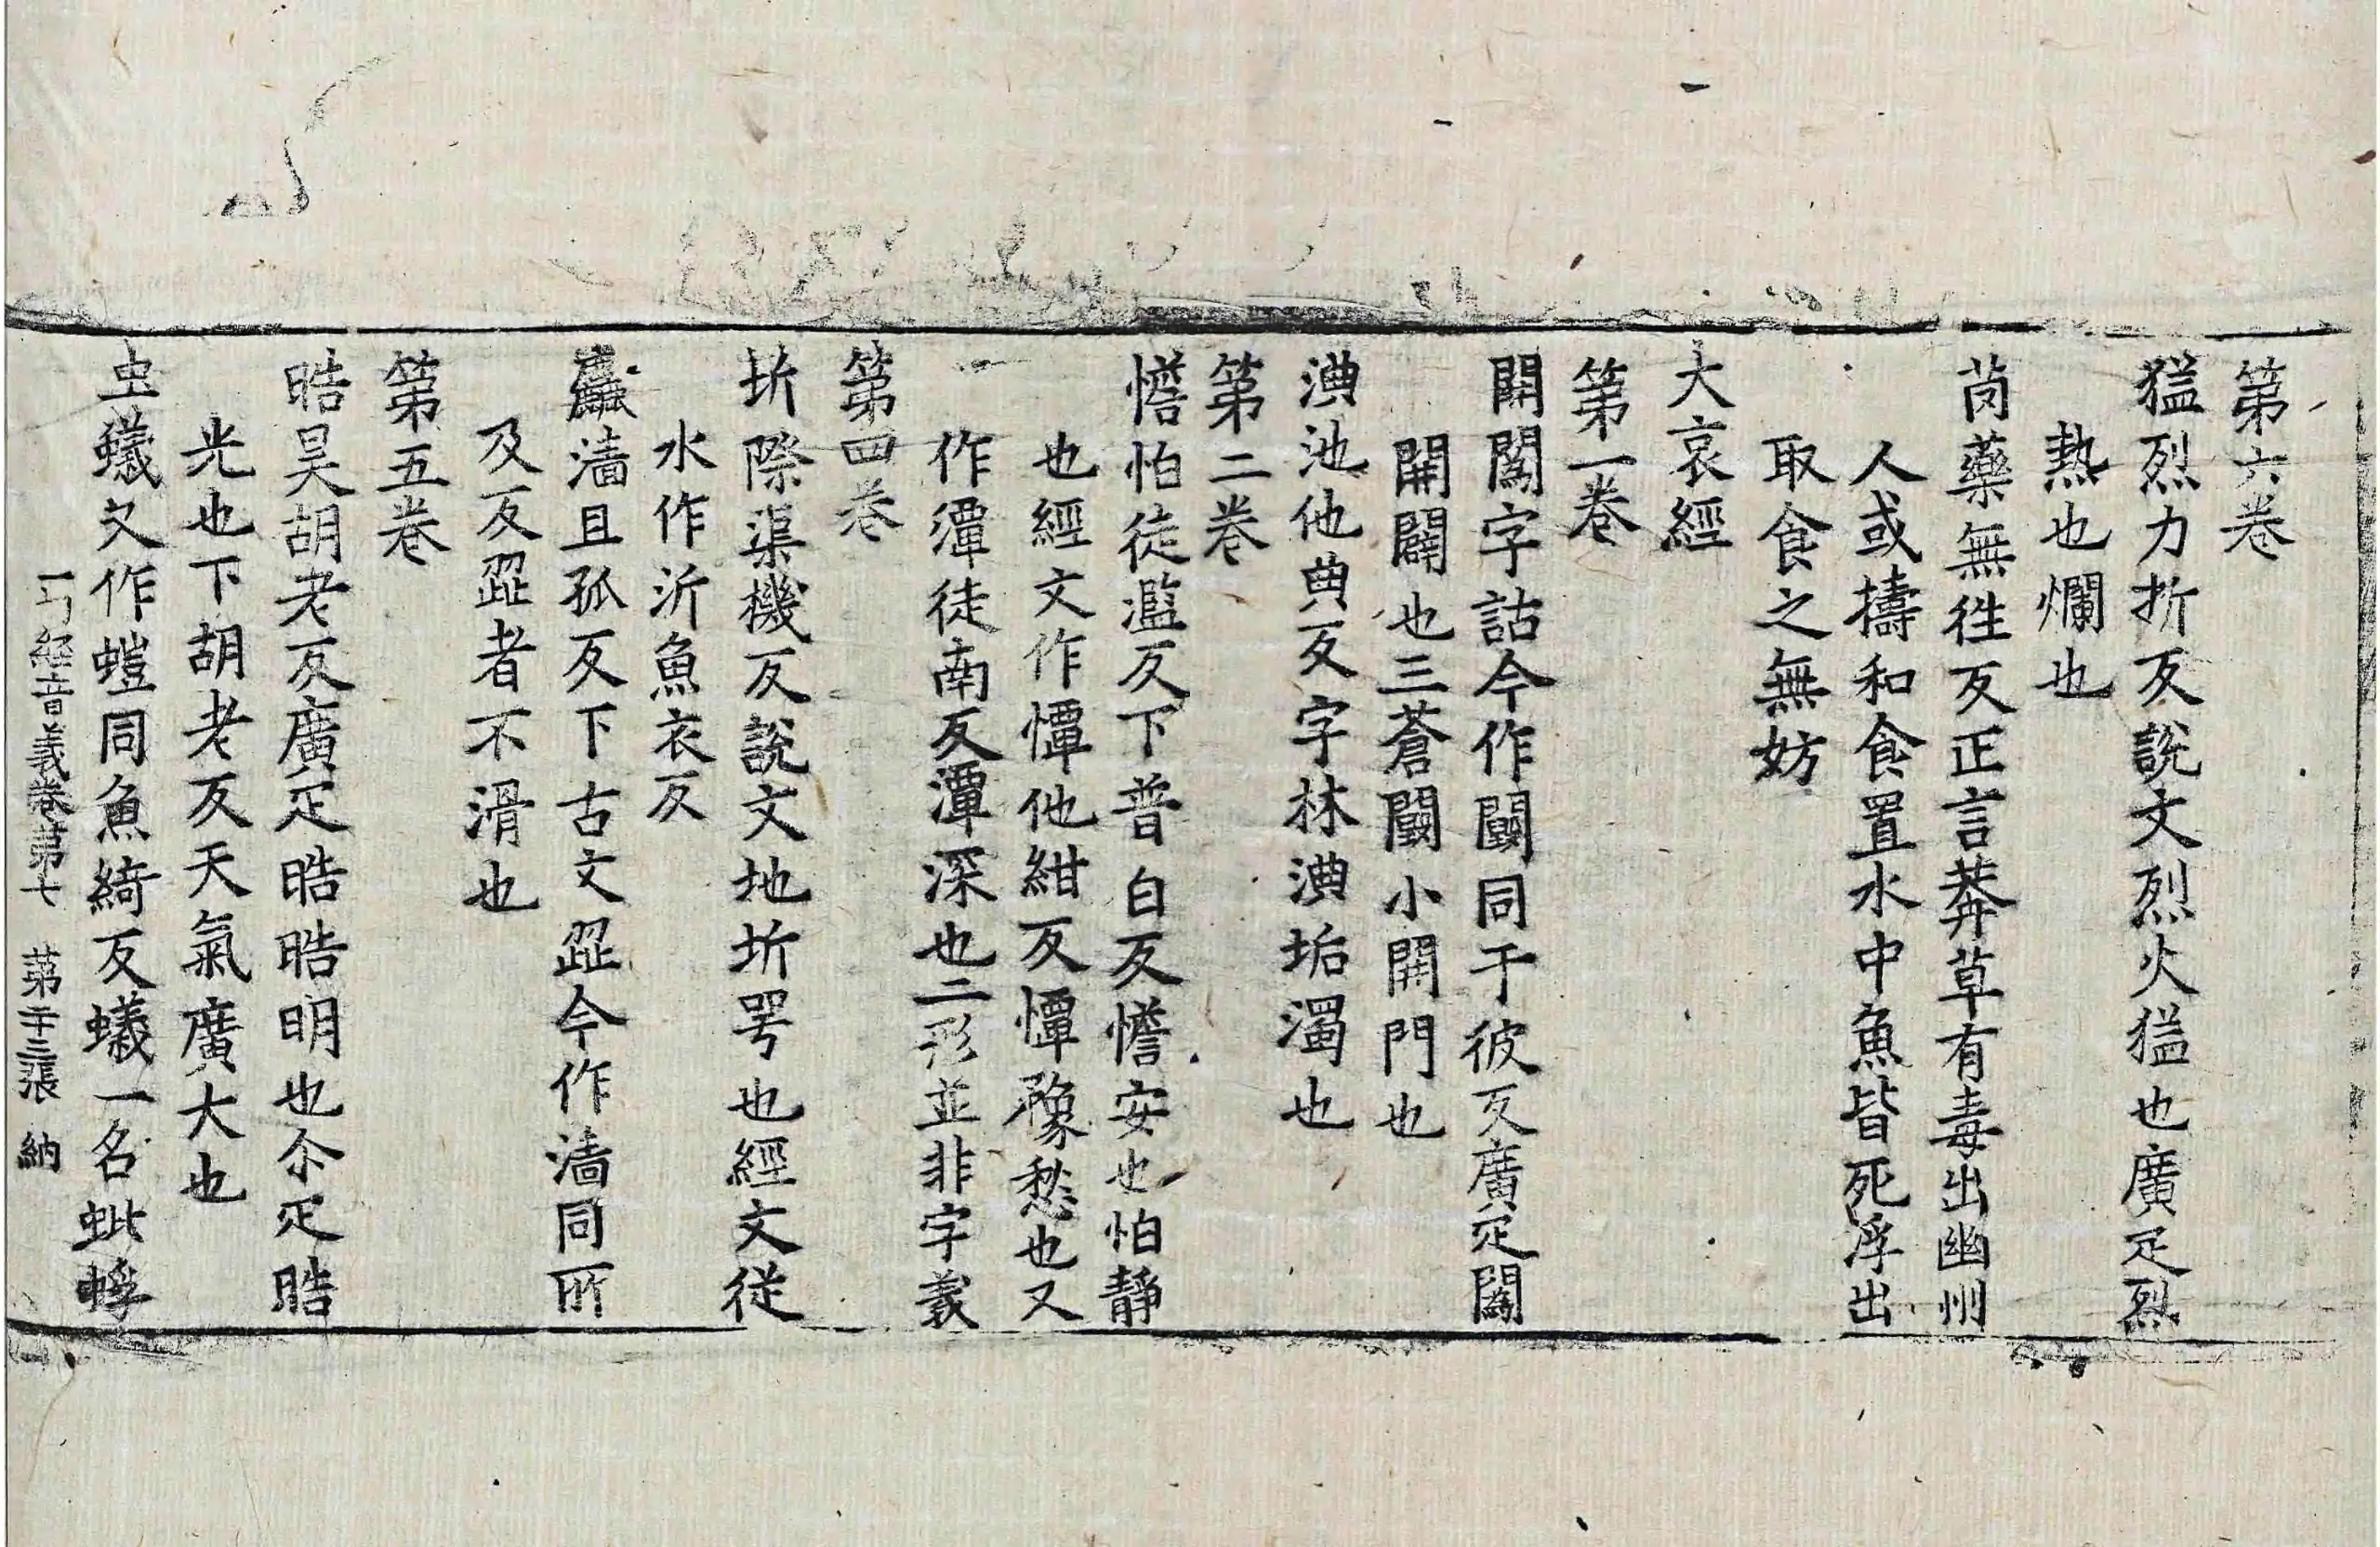 第六卷
猛烈力折反說文烈火猛也廣疋烈
熱也爛也
𦬆藥無往反正言莽草有毒出幽州
人或擣和食置水中魚皆死浮出
取食之無妨
大哀經
第一卷
開闟字詁今作闟同于彼反廣疋闟
開闢也三蒼闟小開門也
淟池他典反字林淟垢濁也
第二卷
憺怕徒濫反下普白反憺安也怕靜
也經文作憛他紺反憛𢥠愁也又
作潭徒南反潭深也二形並非字義
第四卷
圻際渠機反說文地圻咢也經文從
水作沂魚衣反
麤濇且孤反下古文歰今作濇同所
及反歰者不滑也
第五卷
晧昊胡老反廣疋晧晧明也尒疋晧
光也下胡老反天氣廣大也
虫蟻又作螘同魚綺反蟻一名蚍蜉
一切經音義卷第七 第二十三張 納